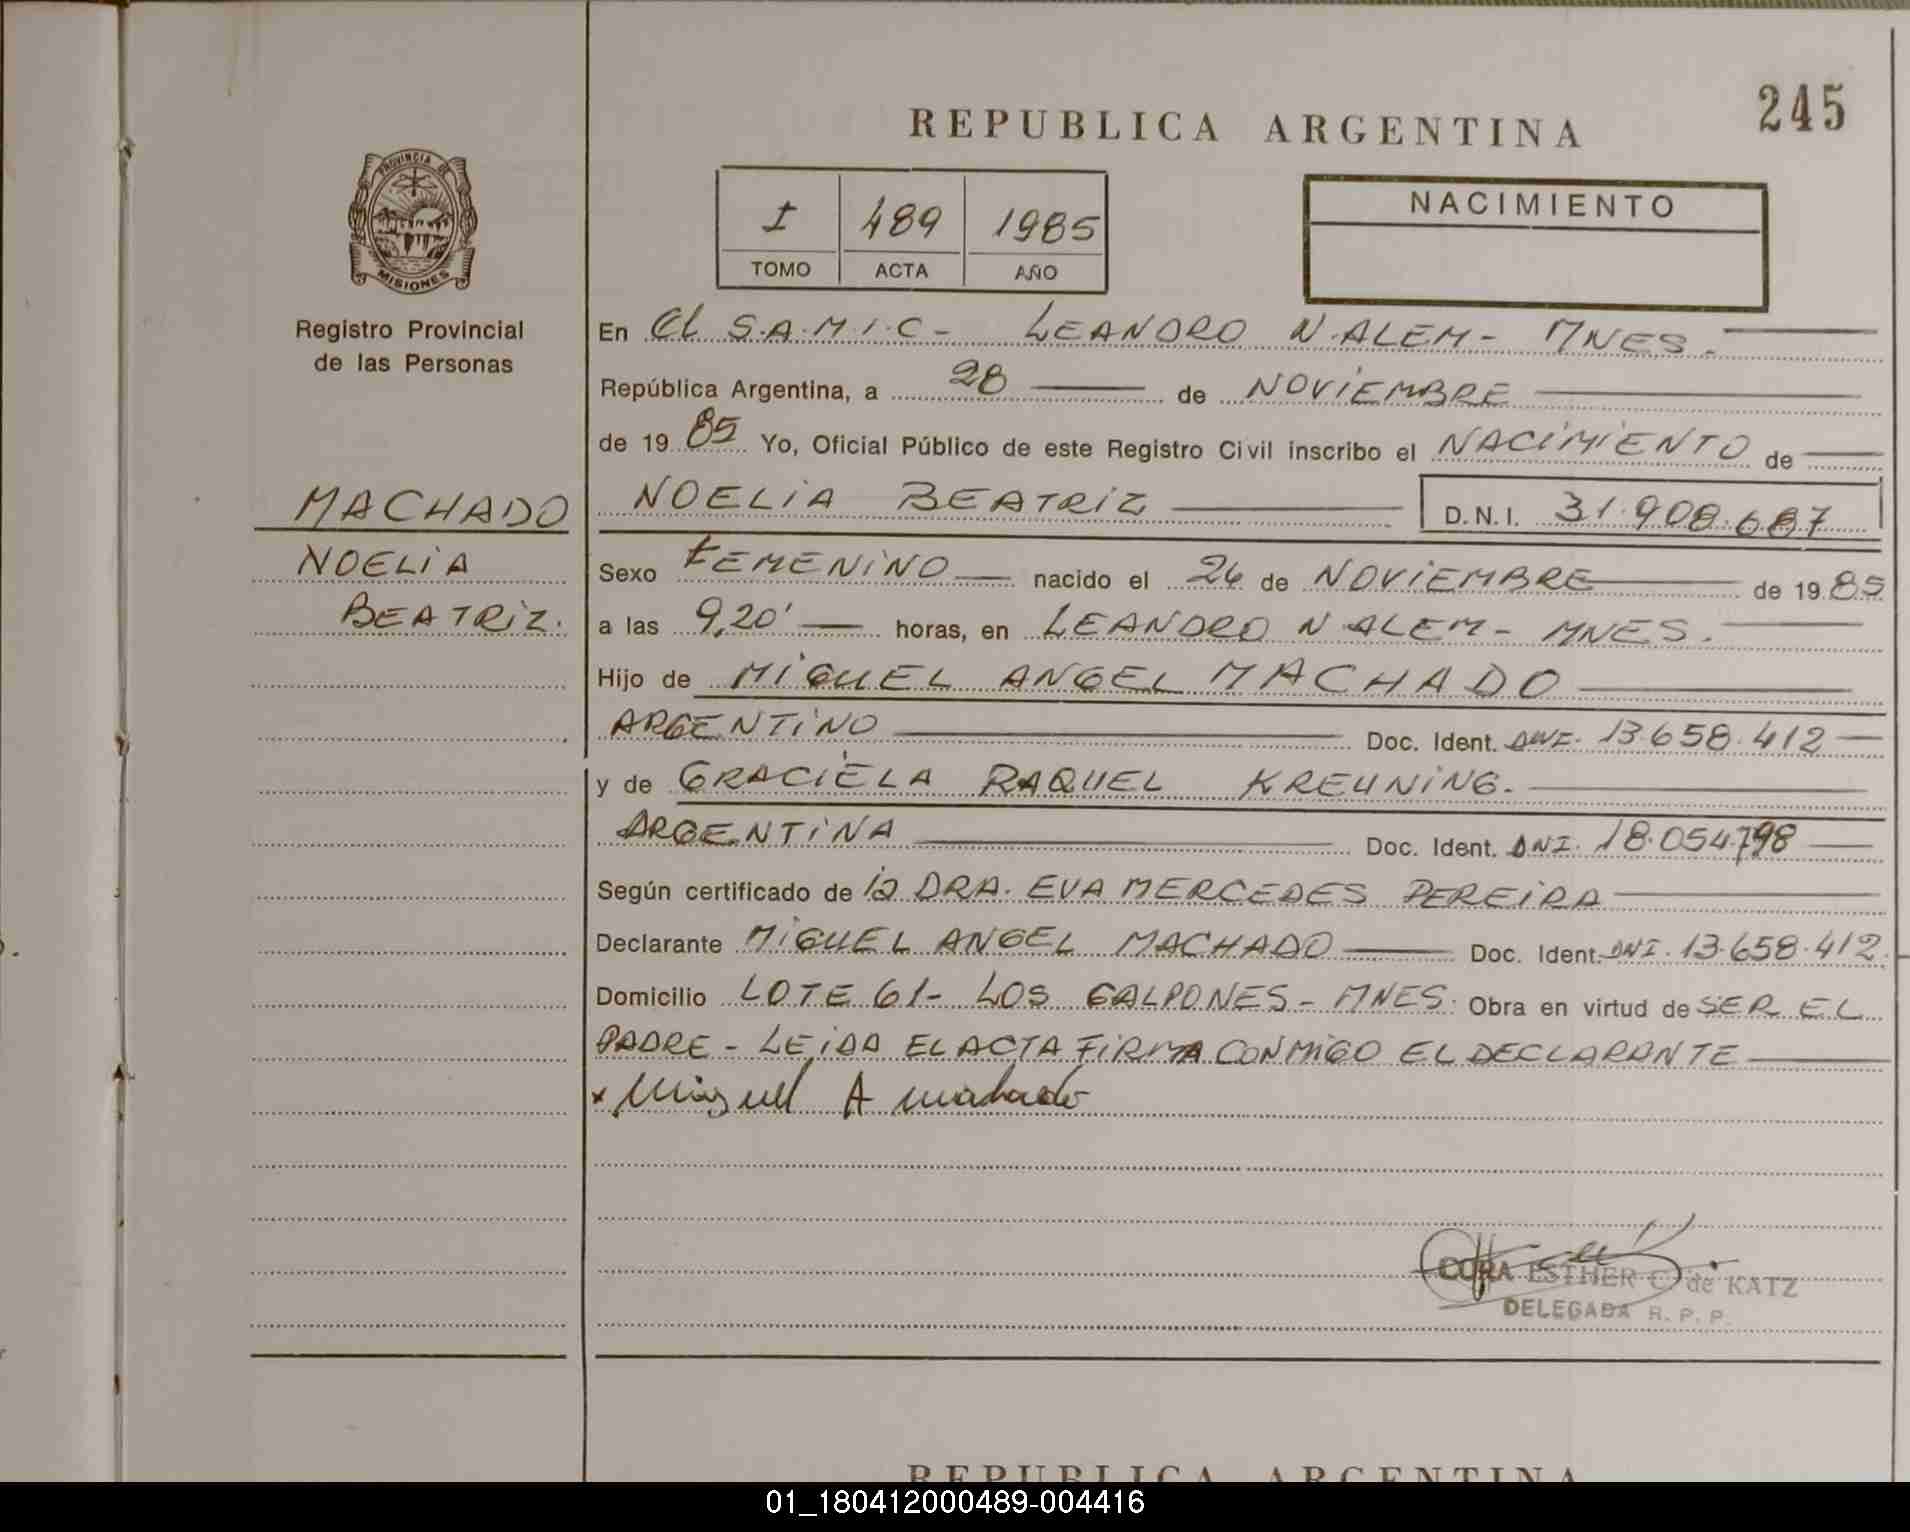 245
REPUBLICA ARGENTINA
PROVINCIA DE
MISIONES
Registro Provincial
de las Personas
I 489 1985
TOMO ACTA AÑO
NACIMIENTO
En El S.A.M.I.C- LEANDRO N.ALEM- MNES.
República Argentina, a 28 de NOVIEMBRE
de 19 85 Yo, Oficial Público de este Registro Civil inscribo el NACIMIENTO de
MACHADO
NOELIA
BEATRIZ.
NOELIA BEATRIZ D.N.I. 31.908.687
Sexo FEMENINO nacido el 26 de NOVIEMBRE de 19 85
a las 9,20' horas, en LEANDRO N ALEM- MNES.
Hijo de MIGUEL ANGEL MACHADO
ARGENTINO Doc. Ident. DNI. 13.658.412
y de GRACIELA RAQUEL KREUNING.
ARGENTINA Doc. Ident. DNI. 18.054.798
Según certificado de la DRA. EVA MERCEDES PEREIRA
Declarante MIGUEL ANGEL MACHADO Doc. Ident. DNI. 13.658.412
Domicilio LOTE 61- LOS GALPONES- MNES. Obra en virtud de SER EL
PADRE - LEIDA EL ACTA FIRMA CONMIGO EL DECLARANTE
x Miguel A machado
CORA ESTHER C. de KATZ
DELEGADA R. P. P.
REPUBLICA ARGENTINA
01_180412000489-004416